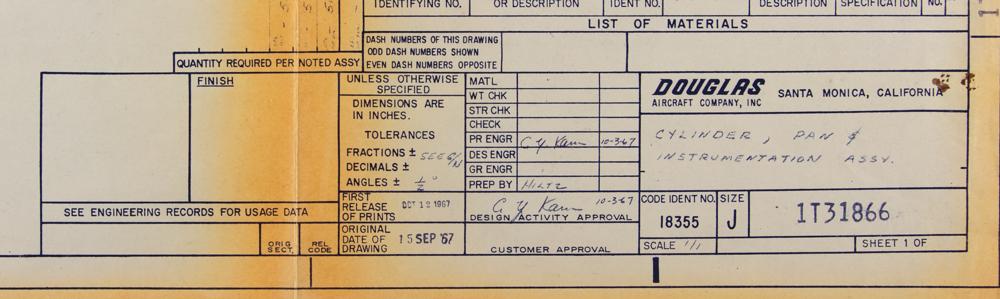 IDENTIFYING NO. OR DESCRIPTION IDENT NO. DESCRIPTION SPECIFICATION NO.
LIST OF MATERIALS
DASH NUMBERS OF THIS DRAWING
ODD DASH NUMBERS SHOWN
EVEN DASH NUMBERS OPPOSITE
QUANTITY REQUIRED PER NOTED ASSY
FINISH
UNLESS OTHERWISE
SPECIFIED
DIMENSIONS ARE
IN INCHES.
TOLERANCES
FRACTIONS ± SEE G/N
DECIMALS ±
ANGLES ± 1/2°
MATL
WT CHK
STR CHK
CHECK
PR ENGR C Y Kam 10-3-67
DES ENGR
GR ENGR
PREP BY HILTZ
DOUGLAS
AIRCRAFT COMPANY, INC
SANTA MONICA, CALIFORNIA
CYLINDER, PAN &
INSTRUMENTATION ASSY.
SEE ENGINEERING RECORDS FOR USAGE DATA
ORIG
SECT.
REL
CODE
FIRST
RELEASE
OF PRINTS
OCT 12 1967
ORIGINAL
DATE OF
DRAWING
15 SEP '67
C. Y Kam 10-3-67
DESIGN ACTIVITY APPROVAL
CUSTOMER APPROVAL
CODE IDENT NO.
18355
SIZE
J
1T31866
SCALE 1/1
SHEET 1 OF